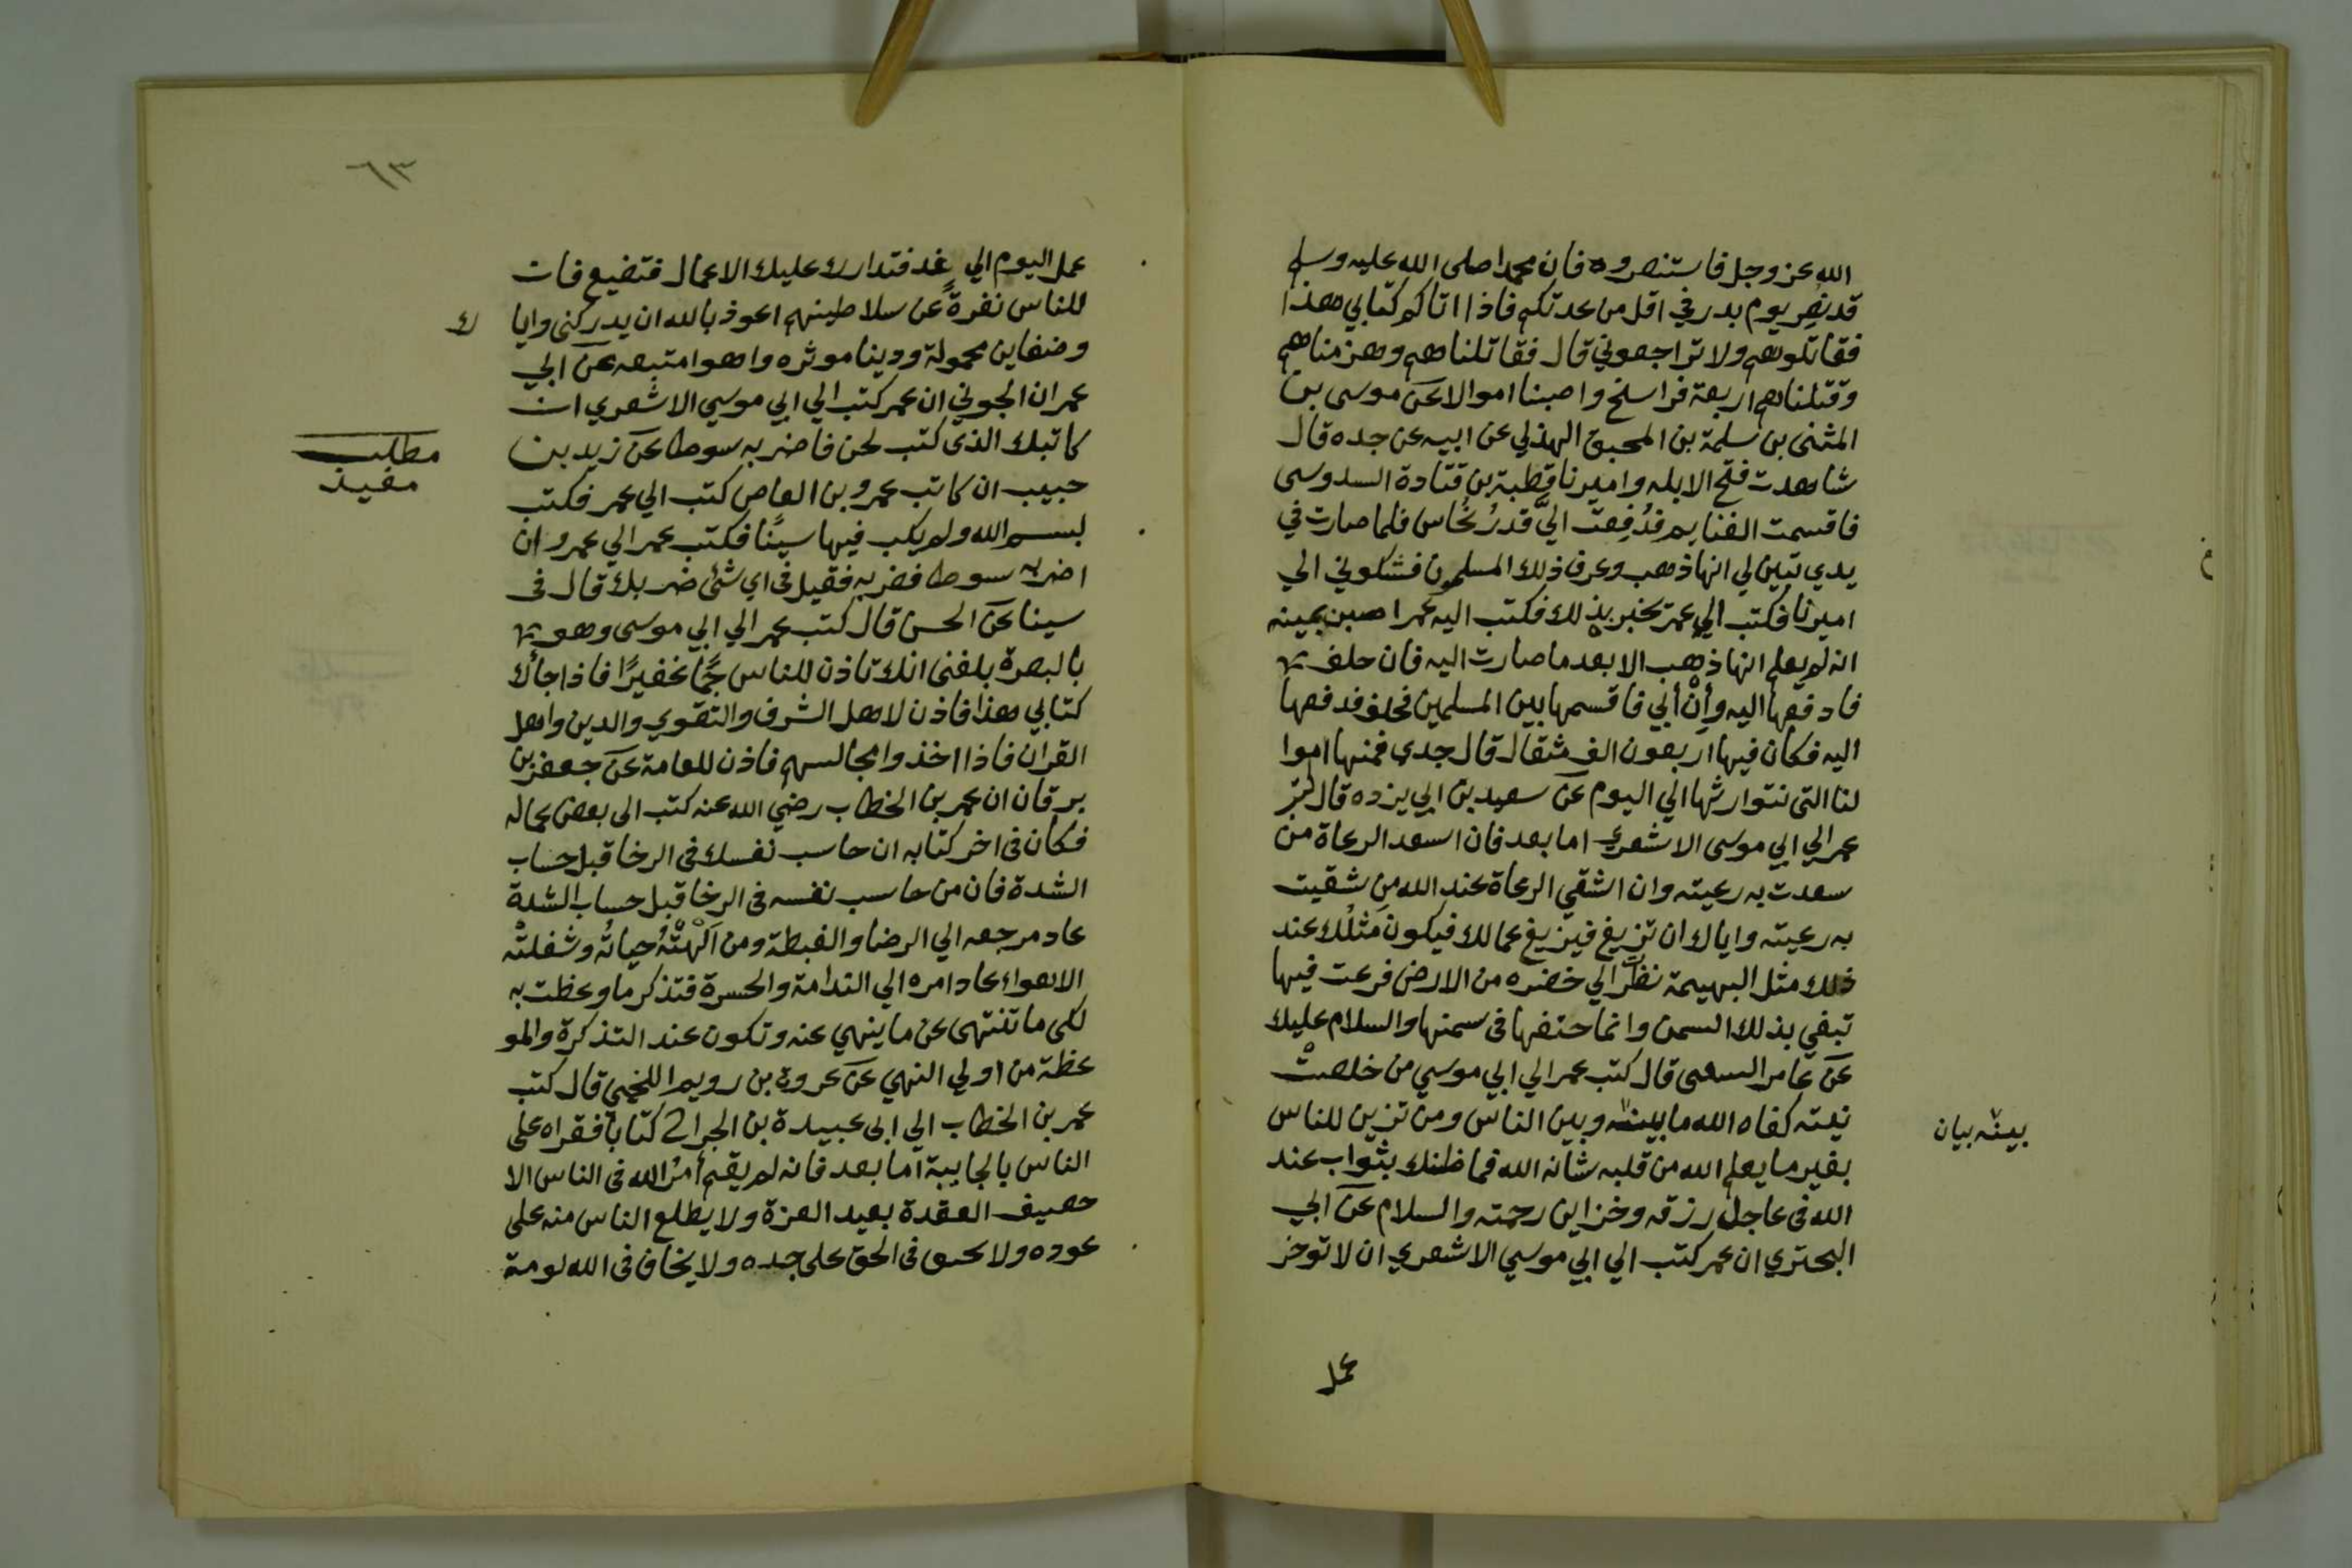 الله عز وجل فاستنصروه فان محمدا صلى الله عليه وسلم
قد نُصِر يوم بدر في اقل من عدتكم فاذا اتاكم كتابي هذا
فقاتلوهم ولا تراجعوني قال فقاتلناهم وهزمناهم
وقتلناهم اربعة فراسخ واصبنا اموالا عن موسى بن
المثنى بن سلمة بن المحبق الهذلي عن ابيه عن جده قال
شاهدت فتح الابله واميرنا قطبة بن قتادة السدوسى
فاقسمت الغنايم فدُفِعت اليَّ قدرُ نُحاس فلما صارت في
يدي تبين لي انها ذهب وعرف ذلك المسلمون فشكوني الي
اميرنا فكتب الي عمر يخبر بذلك فكتب اليه عمر اصبن يمينه
انه لم يعلم انها ذهب الا بعد ما صارت اليه فان حلف
فادفعها اليه وأنْ أبي فاقسمها بين المسلمين فحلف فدفعها
اليه فكان فيها اربعون الف مثقال قال جدي فمنها اموا
لنا التى نتوارثها الي اليوم عن سعيد بن ابي بزده قال كتب
عمر الي ابي موسى الاشعري اما بعد فان اسعد الرعاة من
سعدت به رعيته وان اشقي الرعاة عند الله من شقيت
به رعيته واياك ان تزيغ فيزيغ عمالك فيكون مَثلُك عند
ذلك مثل البهيمة نظرت الي خضره من الارض فرعت فيها
تبغي بذلك السمن وانما حتفها فى سمنها والسلام عليك
عن عامر السعبى قال كتب عمر الي ابي موسي من خلصتْ
نيته كفاه الله ما بينه وبين الناس ومن تزين للناس
بينه بيان
بغير ما يعلم الله من قلبه شانه الله فما ظنك بثواب عند
الله فى عاجل رزقه وخزاين رحمته والسلام عن ابي
البحتري ان عمر كتب الي ابي موسي الاشعري ان لا توخر
عمل
٦٣
عمل اليوم الي غد فتدارك عليك الاعمال فتضيع فان
للناس نفرةً عن سلاطينهم اعوذ بالله ان يدركنى وايا ك
وضغاين محمولة ودينا موثره واهوا متبعه عن ابي
عمران الجوني ان عمر كتب الي ابي موسي الاشعري ان
كاتبك الذى كتب لحن فاضربه سوطا عن زيد بن
مطلب
مفيد
حبيب ان كاتب عمرو بن العاص كتب الي عمر فكتب
بسم الله ولم يكب فيها سينًا فكتب عمر الي عمرو ان
اضربه سوطا فضربه فقيل فى اي شئ ضربك قال فى
سينا عن الحسن قال كتب عمر الي ابي موسى وهو
بالبصرة بلغنى انك تاذن للناس جمًّا غفيرًا فاذا جاءك
كتابي هذا فاذن لاهل الشرف والتقوي والدين واهل
القران فاذا اخذوا مجالسهم فاذن للعامة عن جعفر بن
برقان ان عمر بن الخطاب رضي الله عنه كتب الى بعض عماله
فكان فى اخر كتابه ان حاسب نفسك فى الرخا قبل حساب
الشدة فان من حاسب نفسه فى الرخا قبل حساب الشدة
عاد مرجعه الي الرضا والغبطة ومن الهتْهُ حياتُه وشغلتْه
الاهواء عاد امره الي الندامة والحسرة فتذكر ما وعظت به
لكى ما تنتهى عن ما ينهي عنه وتكون عند التذكرة والمو
عظة من اولي النهي عن عروة بن رويم اللخمى قال كتب
عمر بن الخطاب الي ابى عبيدة بن الجراح كتابا فقراه على
الناس بالجابية اما بعد فانه لم يقم أمرُ الله فى الناس الا
حصيف العقدة بعيد الغزة ولا يطلع الناس منه على
عوده ولا يحنق فى الحق على جده ولا يخاف فى الله لومة